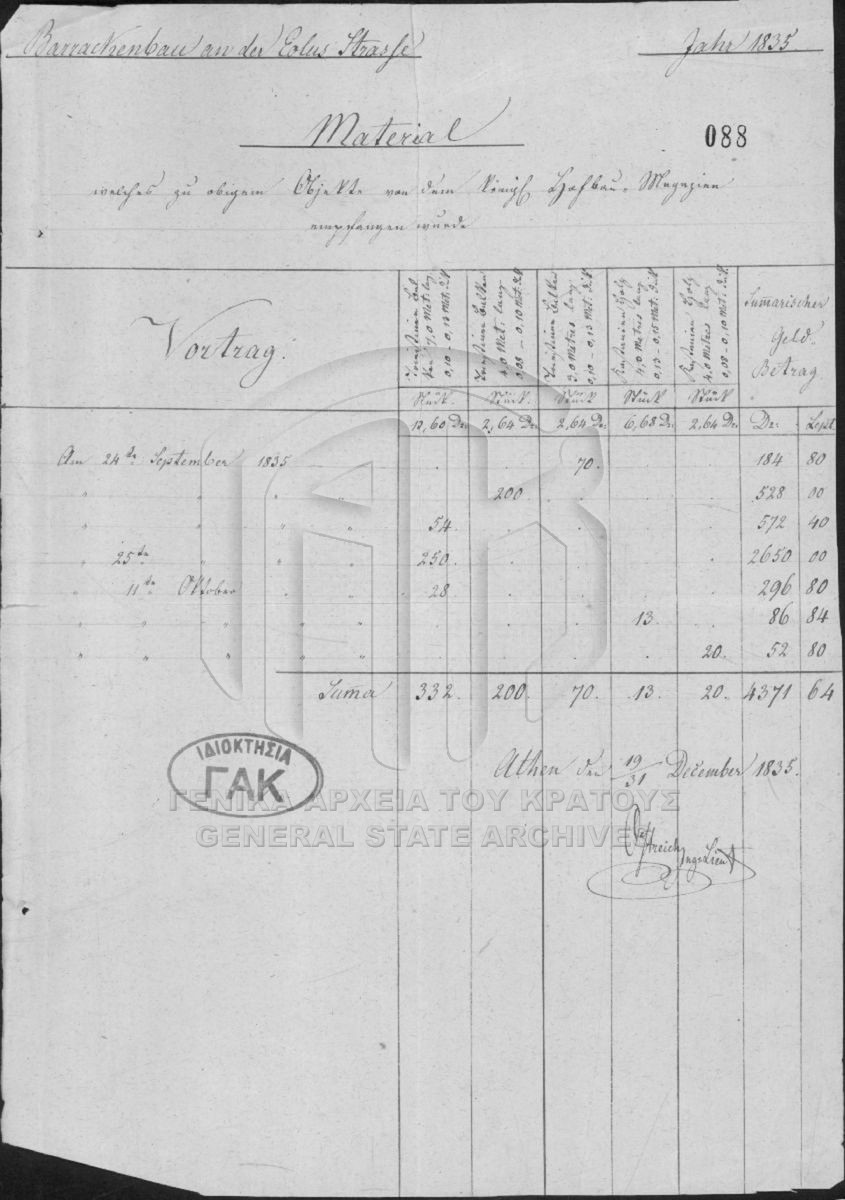 Barrackenbau an der Eolus Strasse Jahr 1835
Material
088
welches zu obigem Objekte von dem königl Hofbau-Magazien
empfangen wurde
Vortrag.
ken 7,0 Met: lang 0,10 – 0,13 Met: dik
Balken 4,0 Met: lang 0,08 – 0,10 Met: dik
Balken 3,0 Metres lang 0,10 – 0,13 Met: dik
Kastanien Holz 4,0 Metres lang 0,13 – 0,15 Met: dik
Kastanien Holz 4,0 Metres lang 0,08 – 0,10 Met: dik
Sumarischer Geld- Betrag
Stück. Stück. Stück Stück Stück
2,64 Dr. 2,64 Dr. 6,68 Dr. 2,64 Dr. Dr. Lept.
Am 24te September 1835 . . 70. . . 184 80
" " " " . 200 . . . 528 00
" " " " 54. . . . . 572 40
" 25te " " " 250. . . . . 2650 00
" 11te Oktober " " 28 . . . . 296 80
" " " " " . . . 13. . 86 84
" " " " " . . . . 20. 52 80
Suma 332. 200. 70. 13. 20. 4371 64
Athen den 19/31 December 1835.
ΙΔΙΟΚΤΗΣΙΑ
ΓΑΚ
ΓΕΝΙΚΑ ΑΡΧΕΙΑ ΤΟΥ ΚΡΑΤΟΥΣ
GENERAL STATE ARCHIVES